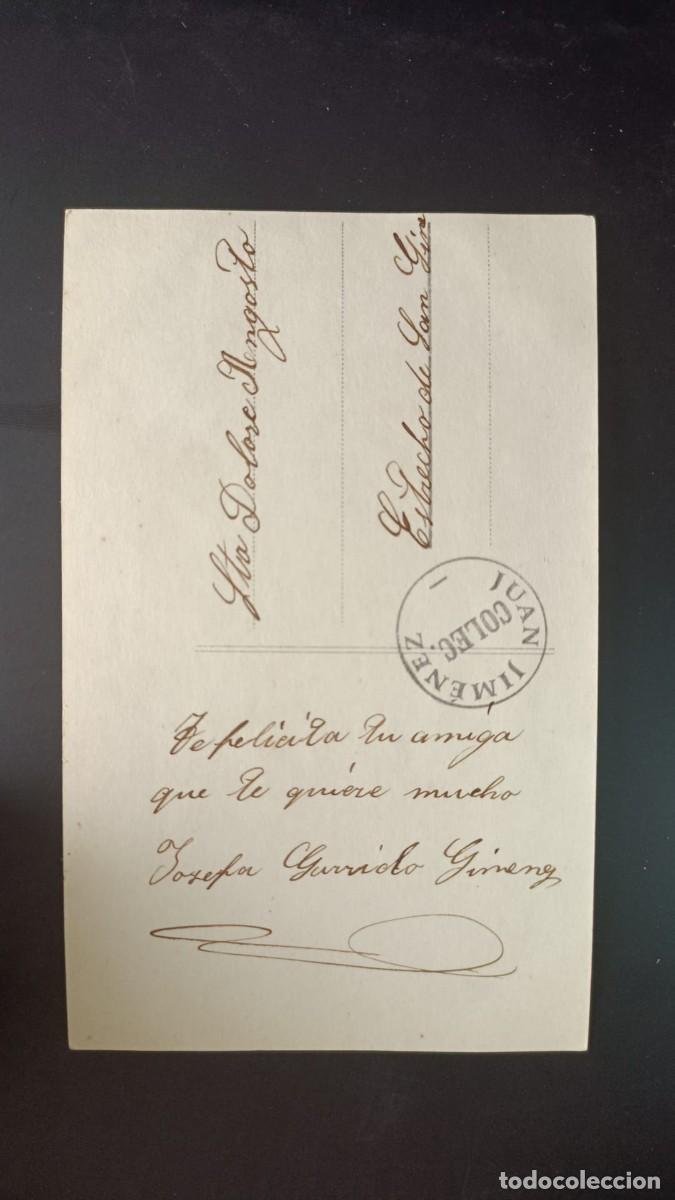 Sta Dolore Angosto
Estrecho de San Gine
JUAN JIMÉNEZ
COLEC.
Te felicita tu amiga
que te quiere mucho
Josefa Garrido Gimenez
todocoleccion